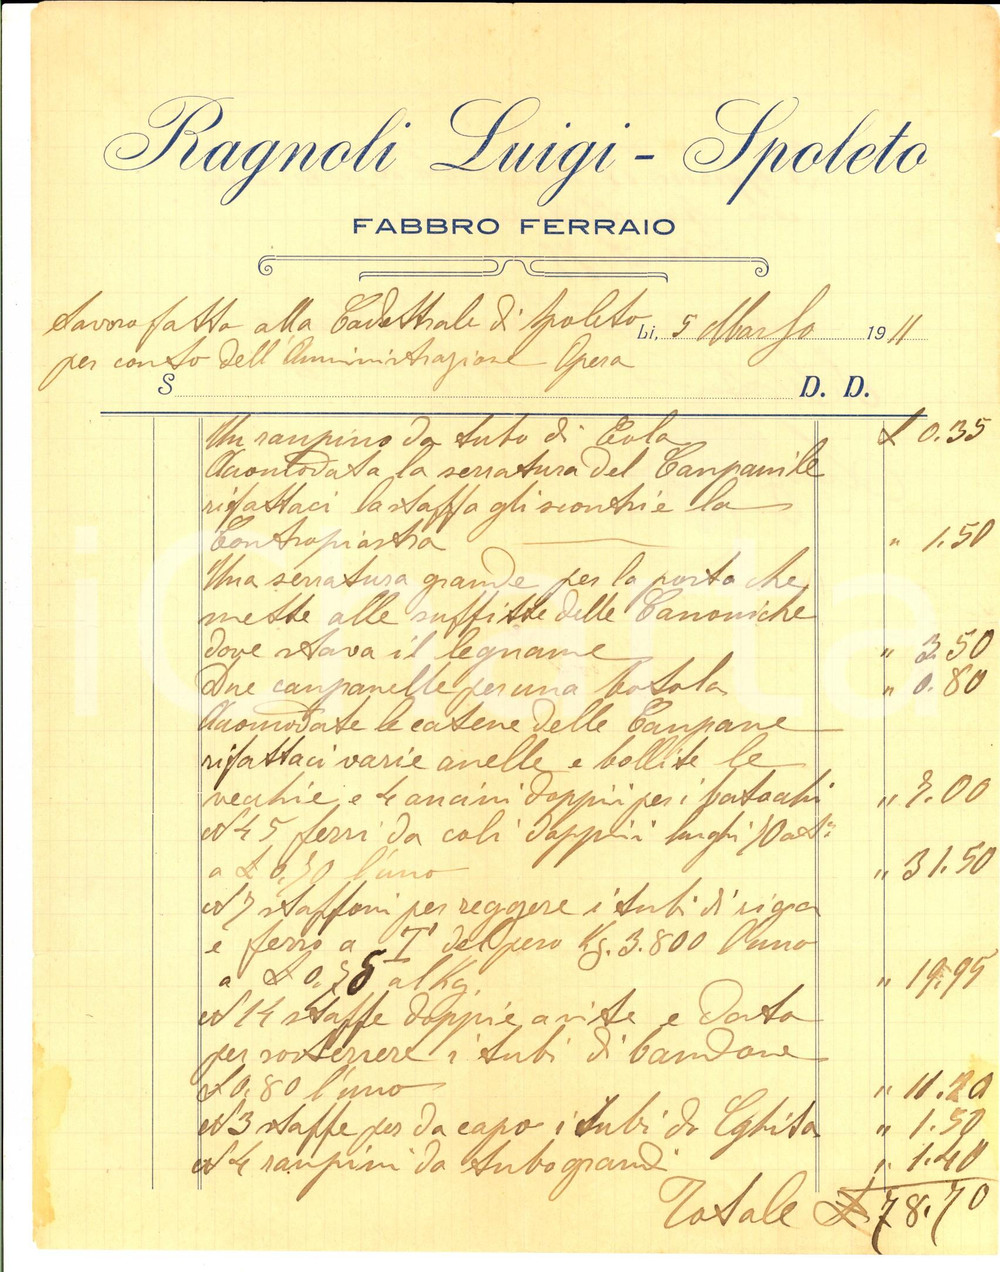 Ragnoli Luigi - Spoleto
FABBRO FERRAIO
Lavoro fatto alla Cadettrale di Spoleto Li, 5 Marzo 1911
per conto dell'Amministrazione Opera
S D. D.
Un ranpino da tubo di Cola £ 0.35
Accomodata la serratura del Canpanile
rifattaci la staffa gli scontri e la
Contropiastra " 1.50
Una serratura grande per la porta che
mette alle suffitte delle Canoniche
dove stava il legname " 3.50
Due canpanelle per una botola " 0.80
Accomodate le catene delle Canpane
rifattaci varie anelle e bollite le
vecchie e 4 ancini doppii per i batocchi " 7.00
N 45 ferri da coli doppii lunghi
a £ 0,70 l'uno " 31.50
N 7 staffoni per reggere i tubi di
e ferro a T del peso Kg. 3.800 l'uno
a £ 0,75 al Kg. " 19.95
N 14 staffe doppie a vite e dato
per sosterrere i tubi di bandone
£ 0.80 l'uno " 11.20
N 3 staffe per da capo i tubi di Ghisa " 1.50
N 4 ranpini da tubo grandi " 1.40
Totale £ 78.70
iCharta